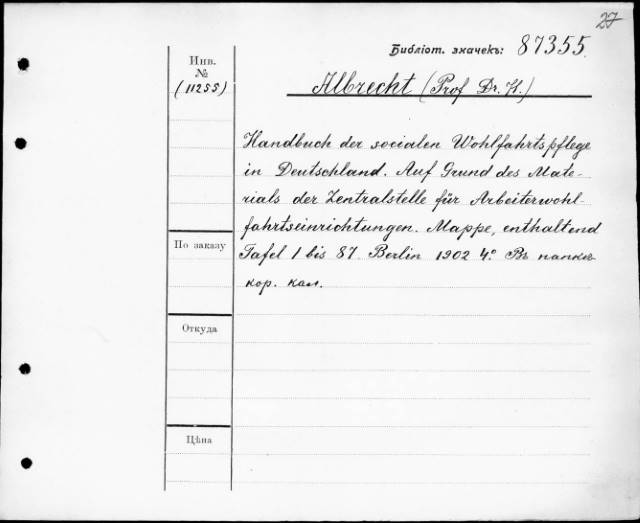 27
Библіот. значекъ: 87355.
Инв.
№
(11255)
Albrecht (Prof Dr. H.)
Handbuch der socialen Wohlfahrtspflege
in Deutschland. Auf Grund des Mate-
rials der Zentralstelle für Arbeiterwohl-
fahrtseinrichtungen. Mappe, enthaltend
Tafel 1 bis 87. Berlin 1902 4° Въ папкѣ
кор. кал.
По заказу
Откуда
Цѣна